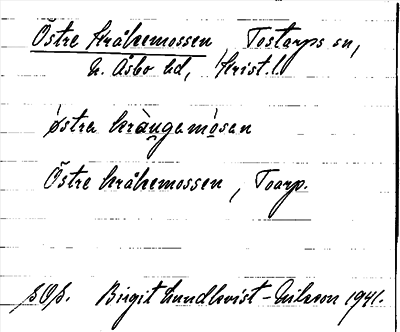 Östre Kråkemossen Tostarps sn,
N. Åsbo hd, Krist. l.
østra kràngamosan
Östre kråkemossen, Toarp.
sOs. Birgit Lundkvist-Nilsson 1941.